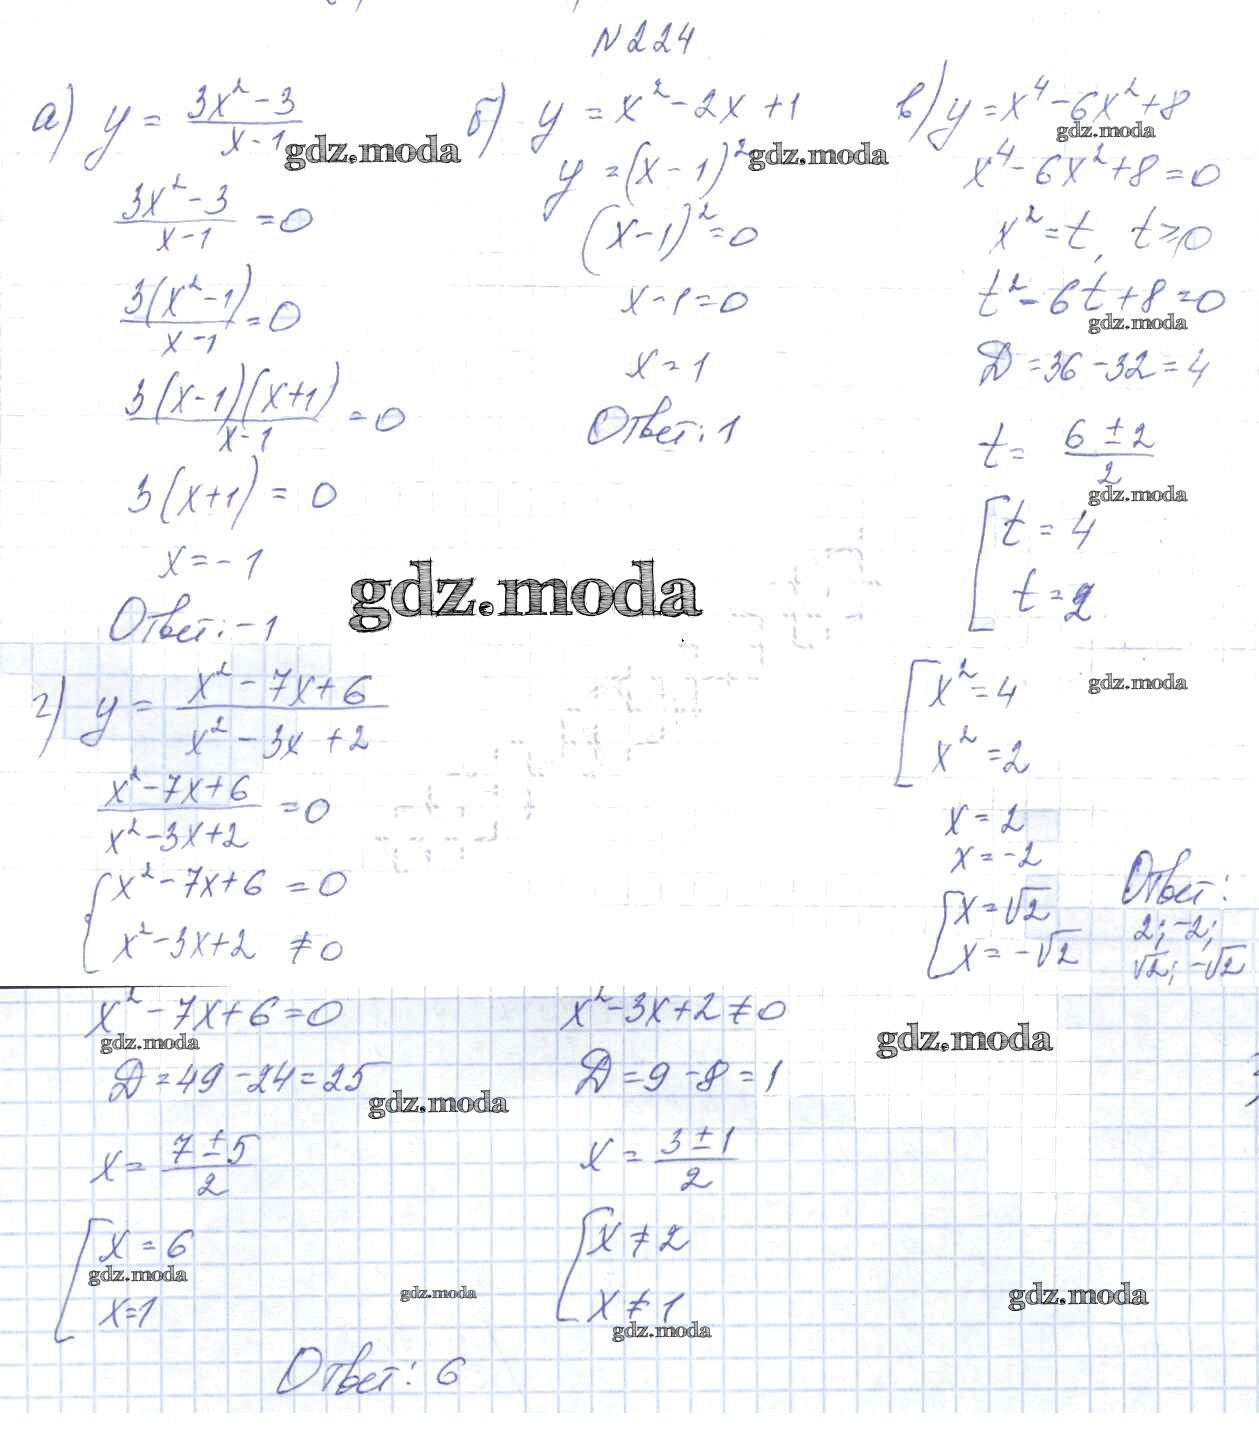 N 224
а) y = (3x² - 3)/(x - 1)
gdz.moda
(3x² - 3)/(x - 1) = 0
3(x² - 1)/(x - 1) = 0
3(x - 1)(x + 1)/(x - 1) = 0
3(x + 1) = 0
x = -1
Ответ: -1
б) y = x² - 2x + 1
y = (x - 1)²
gdz.moda
(x - 1)² = 0
x - 1 = 0
x = 1
Ответ: 1
в) y = x⁴ - 6x² + 8
gdz.moda
x⁴ - 6x² + 8 = 0
x² = t, t ≥ 0
t² - 6t + 8 = 0
gdz.moda
D = 36 - 32 = 4
t = (6 ± 2)/2
gdz.moda
[ t = 4
t = 2
gdz.moda
[ x² = 4
gdz.moda
x² = 2
x = 2
x = -2
[ x = √2
x = -√2
Ответ:
2; -2;
√2; -√2
г) y = (x² - 7x + 6)/(x² - 3x + 2)
(x² - 7x + 6)/(x² - 3x + 2) = 0
{ x² - 7x + 6 = 0
x² - 3x + 2 ≠ 0
x² - 7x + 6 = 0
gdz.moda
D = 49 - 24 = 25
gdz.moda
x = (7 ± 5)/2
[ x = 6
gdz.moda
x = 1
x² - 3x + 2 ≠ 0
gdz.moda
D = 9 - 8 = 1
x = (3 ± 1)/2
[ x ≠ 2
x ≠ 1
gdz.moda
gdz.moda
gdz.moda
Ответ: 6